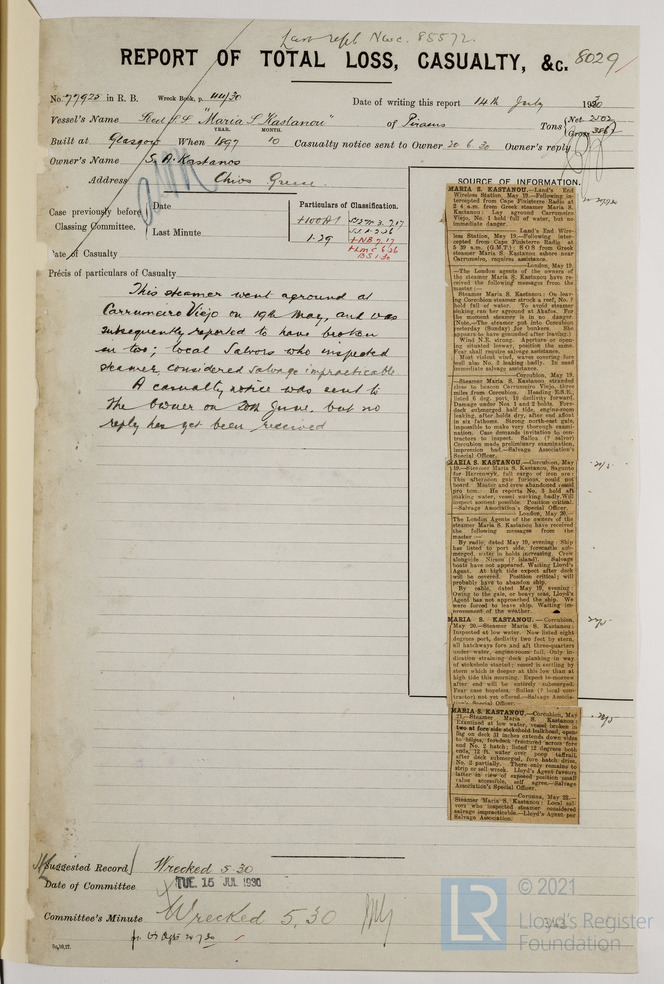 Last rept Nwc. 85572.
REPORT OF TOTAL LOSS, CASUALTY, &c. 8029
No. 77925 in R. B. Wreck Book, p. 44/30
Date of writing this report 14th July 1930
Vessel's Name Steel S.S "Maria S Kastanou" of Piraeus Tons Net 2502 Gross
YEAR. MONTH.
Built at Glasgow When 1897 10 Casualty notice sent to Owner 20 6 30 Owner's reply
Owner's Name S. A. Kastanos
Address Chios Greece
SOURCE OF INFORMATION.
Case previously before Classing Committee.
Date
Last Minute
Particulars of Classification.
+100A1
1.29
Date of Casualty
Précis of particulars of Casualty
This steamer went aground at
Carrumeiro Viejo on 19th May, and was
subsequently reported to have broken
in too; local Salvors who inspected
steamer considered salvage impracticable
A casualty notice was sent to
the Owner on 20th June, but no
reply has yet been received
MARIA S. KASTANOU.—Land's End
Wireless Station, May 19.—Following in-
tercepted from Cape Finisterre Radio at
2 4 a.m. from Greek steamer Maria S.
Kastanou: Lay aground Carrumeiro
Viejo, No. 1 hold full of water, but no
immediate danger.
Land's End Wire-
less Station, May 19.—Following inter-
cepted from Cape Finisterre Radio at
5 39 a.m. (G.M.T.): S O S from Greek
steamer Maria S. Kastanou ashore near
Carrumeiro, requires assistance.
London, May 19.
—The London agents of the owners of
the steamer Maria S. Kastanou have re-
ceived the following messages from the
master:—
Steamer Maria S. Kastanou: On leav-
ing Corcubion steamer struck a reef, No. ?
hold full of water. To avoid steamer
sinking ran her aground at Akafos. For
the moment steamer is in no danger.
Note.—The steamer put into Corcubion
yesterday (Sunday) for bunkers. She
appears to have grounded after leaving.)
Wind N.E. strong. Aperture or open-
ing situated leeway, position the same.
Fear shall require salvage assistance.
Most violent wind, waves covering fore
well also No. 2 leaking badly. In need
immediate salvage assistance.
Corcubion, May 19.
—Steamer Maria S. Kastanou stranded
close to beacon Carrumeiro Viejo, three
miles from Corcubion. Heading E.S.E.,
listed 6 deg. port, 10 declivity forward.
Damage under Nos. 1 and 2 holds. Fore-
deck submerged half tide, engine-room
leaking, after holds dry, after end afloat
in six fathoms. Strong north-east gale,
impossible to make very thorough exami-
nation. Case demands invitation to con-
tractors to inspect. Salloa (? salvor)
Corcubion made preliminary examination,
impression bad.—Salvage Association's
Special Officer.
MARIA S. KASTANOU.—Corcubion, May
19.—Steamer Maria S. Kastanou, Sagunto
for Herrenwyk, full cargo of iron ore:
This afternoon gale furious, could not
board. Master and crew abandoned vessel
pro tem. He reports No. 3 hold aft
making water, vessel working badly. Will
inspect soonest possible. Position critical.
—Salvage Association's Special Officer.
London, May 20.—
The London Agents of the owners of the
steamer Maria S. Kastanou have received
the following messages from the
master:—
By radio, dated May 19, evening: Ship
has listed to port side, forecastle sub-
merged, water in holds increasing. Crew
alongside Nirson (? island). Salvage
boats have not appeared. Waiting Lloyd's
Agent. At high tide expect after deck
will be covered. Position critical; will
probably have to abandon ship.
By cable, dated May 19, evening:
Owing to the gale, or heavy seas, Lloyd's
Agent has not approached the ship. We
were forced to leave ship. Waiting im-
provement of the weather.
MARIA S. KASTANOU.—Corcubion,
May 20.—Steamer Maria S. Kastanou:
Inspected at low water. Now listed eight
degrees port, declivity two feet by stern,
all hatchways fore and aft three-quarters
under water, engine-room full. Only in-
dication straining deck planking in way
of stokehold started; vessel is settling by
stern which is deeper at this low than at
high tide this morning. Expect to-morrow
after end will be entirely submerged.
Fear case hopeless. Salloa (? local con-
tractor) not yet offered.—Salvage Associa-
tion's Special Officer.
MARIA S. KASTANOU.—Corcubion, May
21.—Steamer Maria S. Kastanou:
Examined at low water, vessel broken in
two at fore side stokehold bulkhead, open-
ing on deck 31 inches extends down sides
to bilges, foredeck fractured across fore
end No. 2 hatch; listed 12 degrees both
ends, 12 ft. water over poop taffrail,
after deck submerged, fore hatch drive,
No. 2 partially. There only remains to
strip or sell wreck. Lloyd's Agent favours
latter in view of exposed position small
value accessible, self agree.—Salvage
Association's Special Officer.
Corunna, May 22.—
Steamer Maria S. Kastanou: Local sal-
vors who inspected steamer considered
salvage impracticable.—Lloyd's Agent per
Salvage Association.
Suggested Record Wrecked 5.30
Date of Committee TUE. 15 JUL 1930
Committee's Minute Wrecked 5.30
© 2021
Lloyd's Register
Foundation